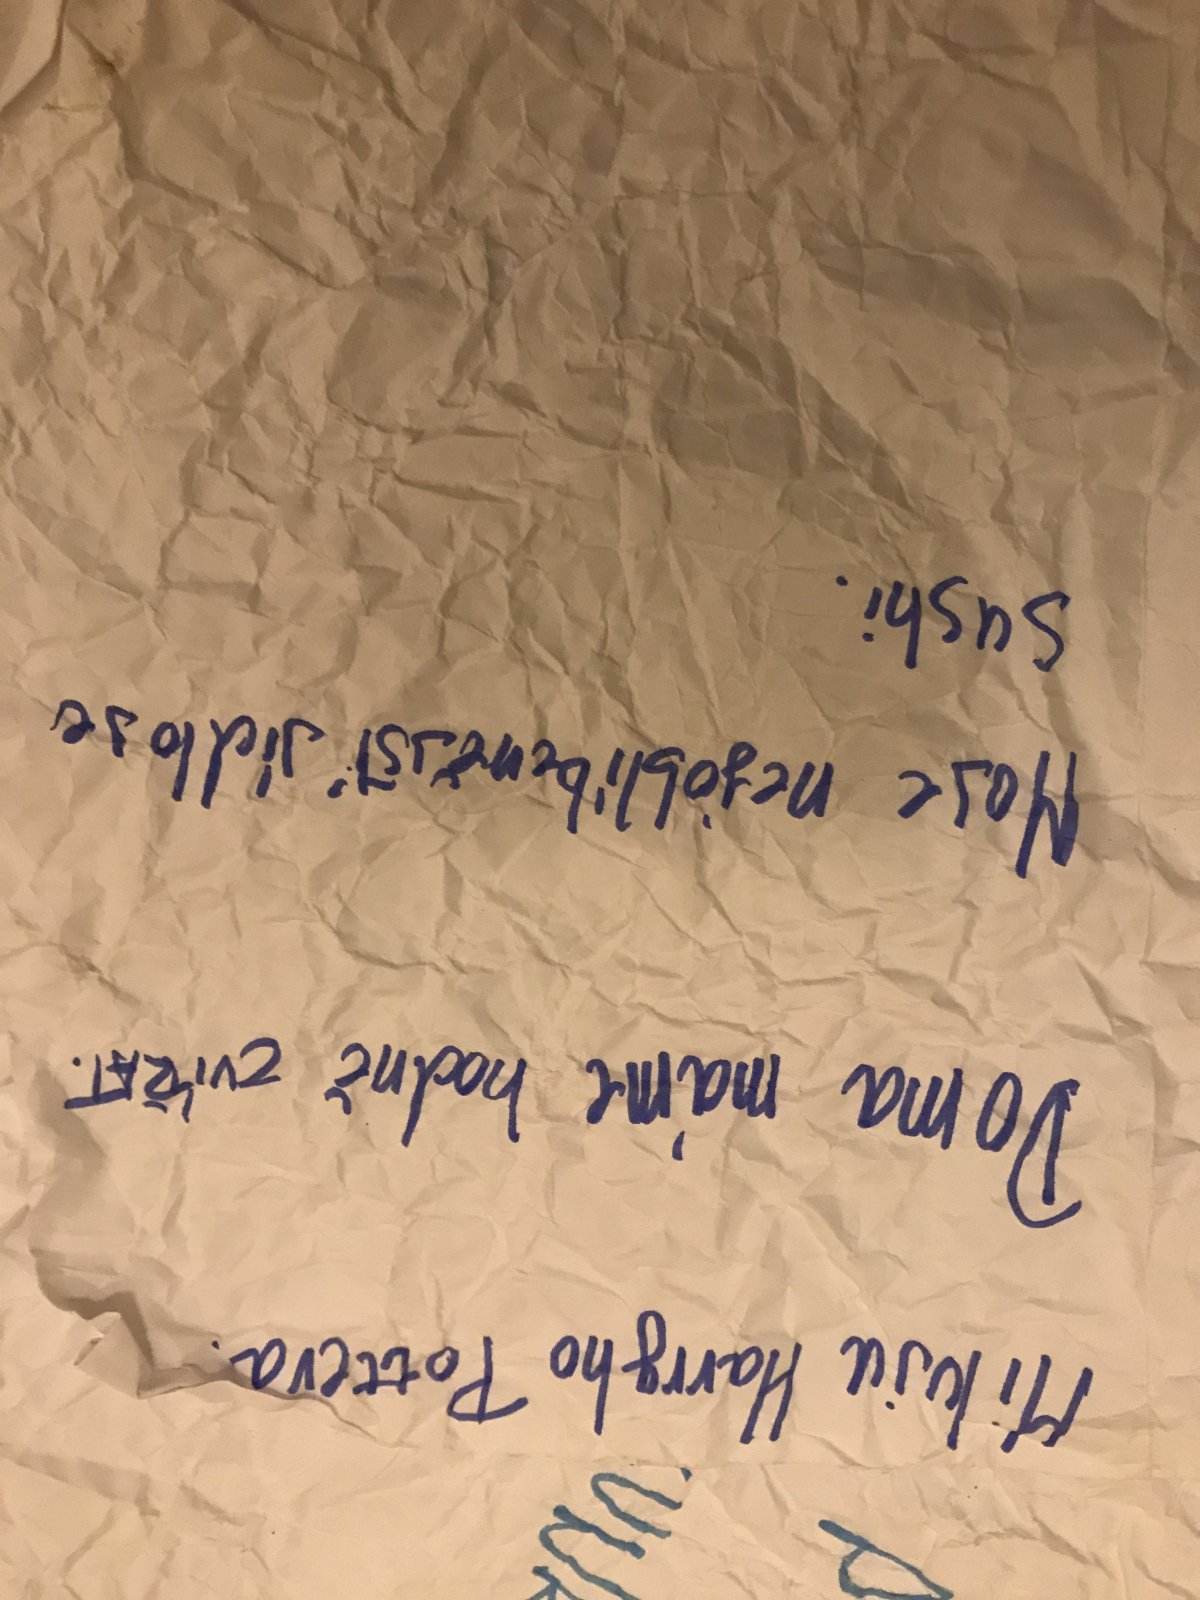 Mikju Harryho Pottera.
Doma máme hodně zvířAT.
Moje nejobliběnejstí jidlo je
Sushi.